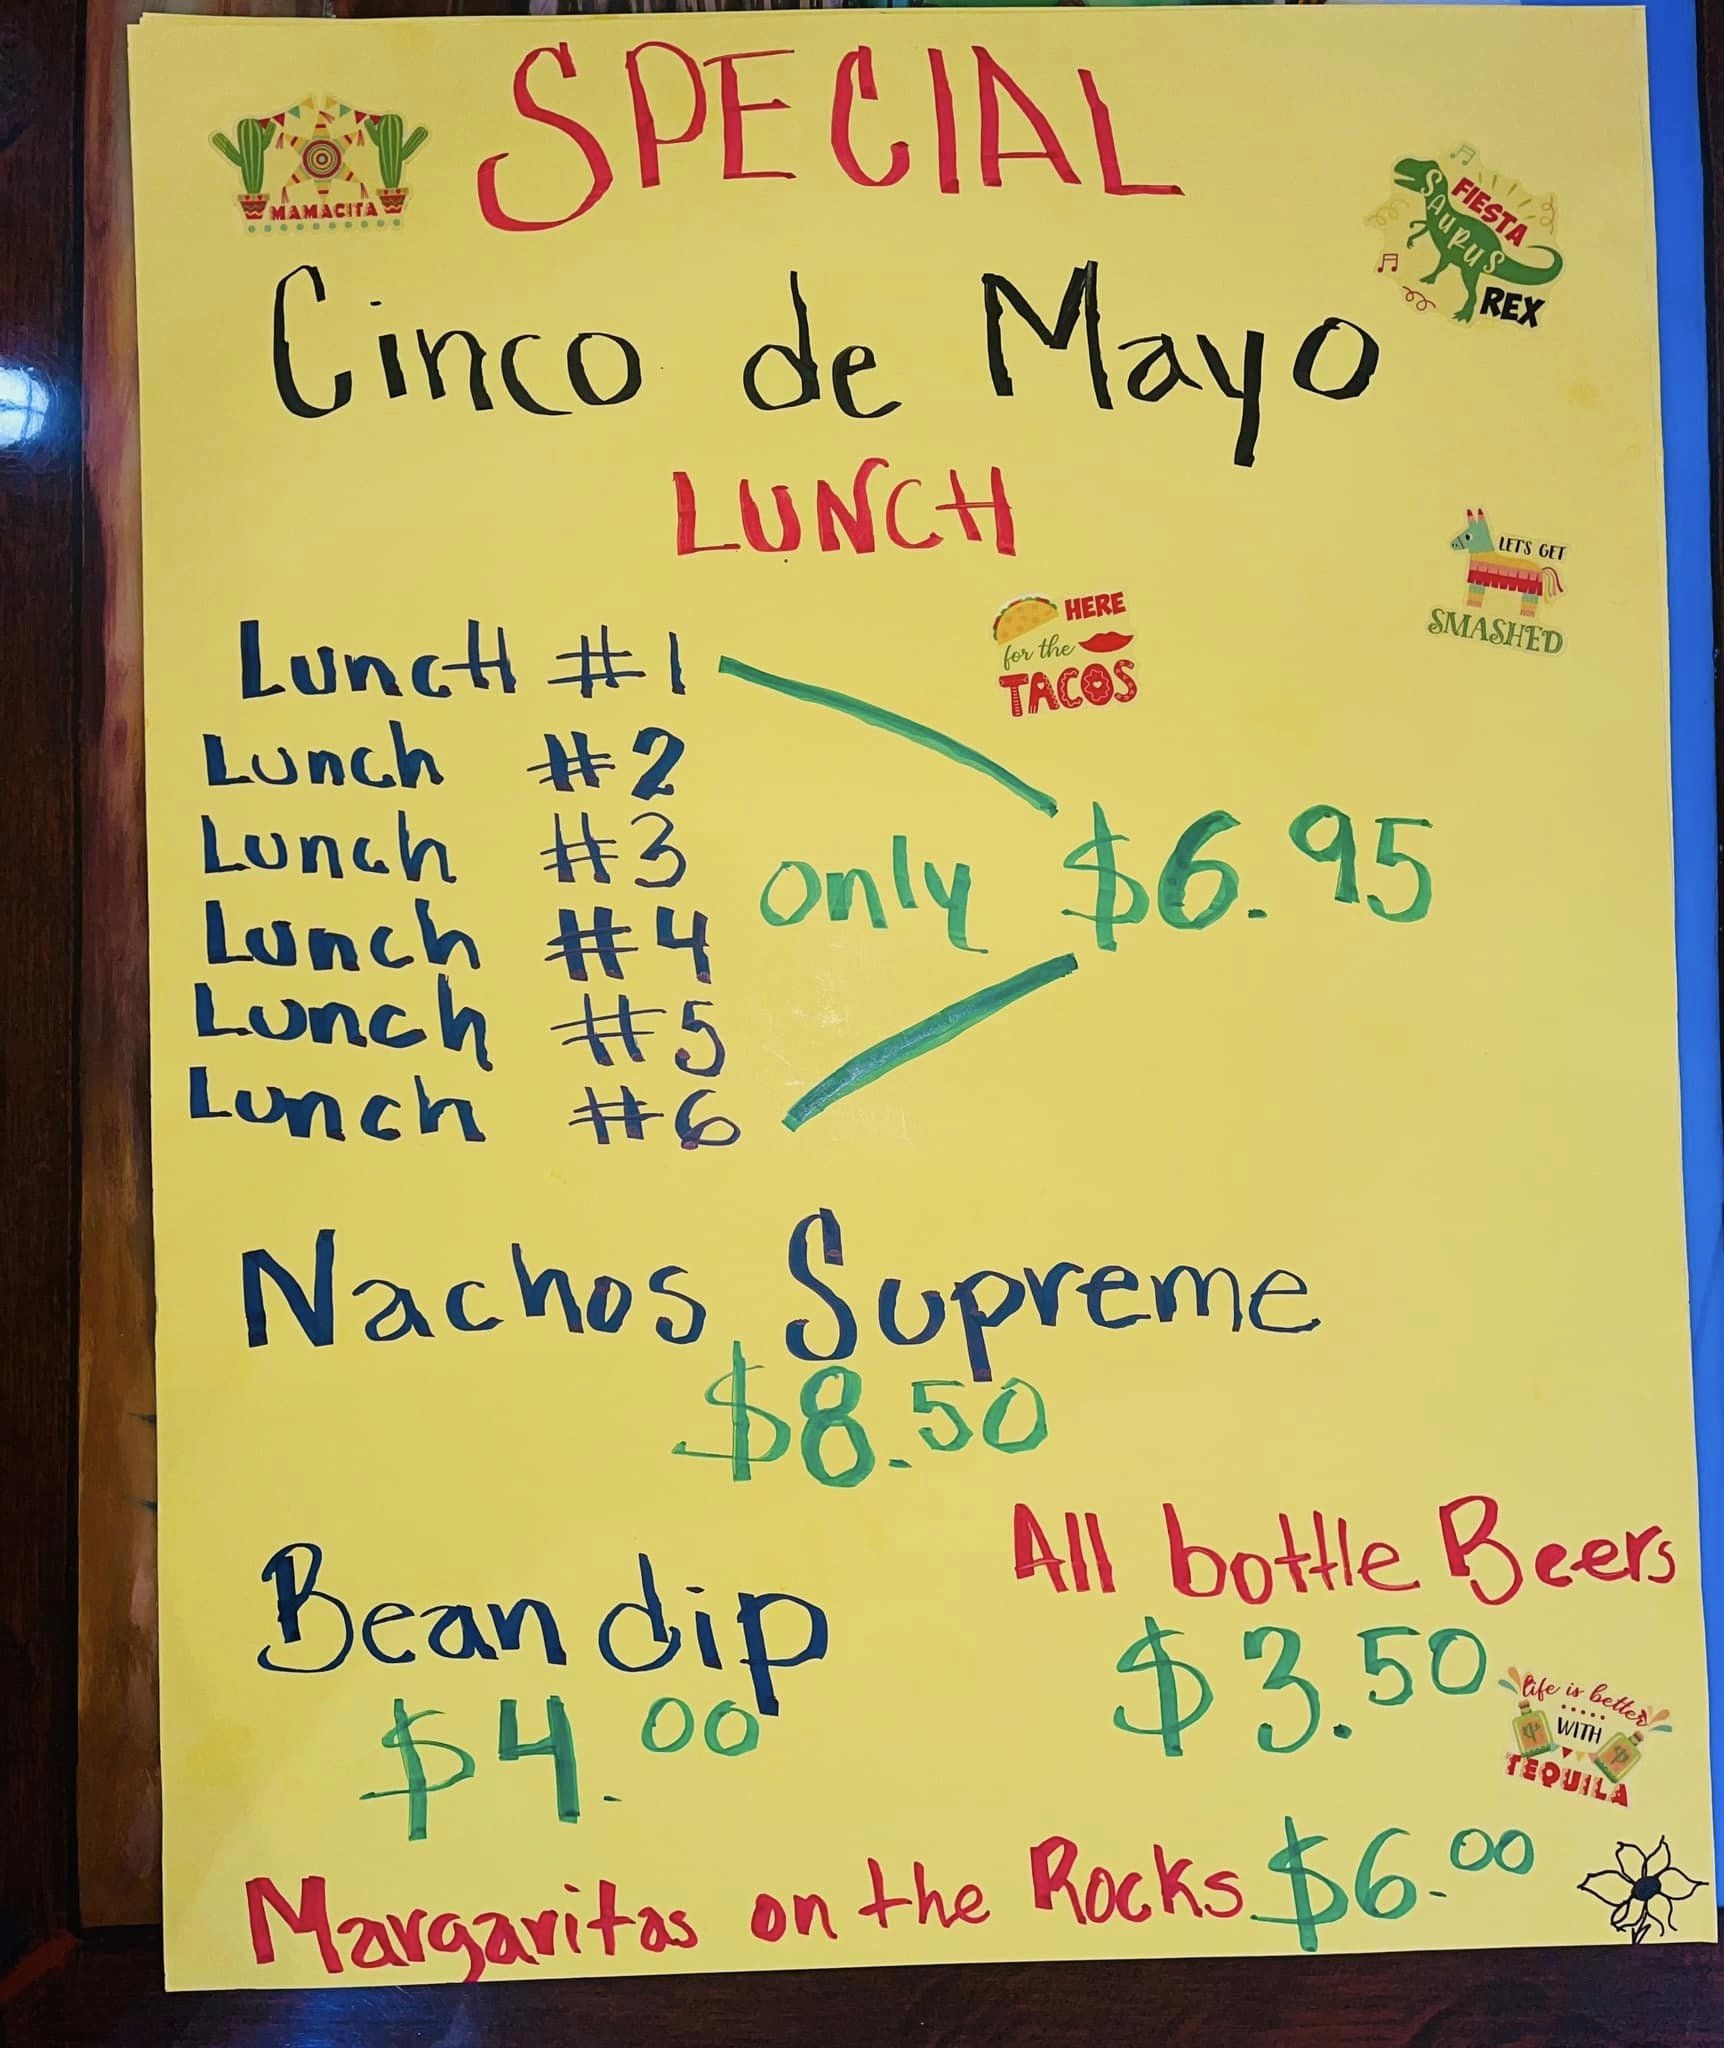 SPECIAL
MAMACITA
FIESTA
SAURUS
REX
Cinco de Mayo
LUNCH
LET'S GET
SMASHED
HERE
for the
TACOS
LuncH #1
Lunch #2
Lunch #3
Lunch #4
Lunch #5
Lunch #6
only $6.95
Nachos Supreme
$8.50
Bean dip
$4.00
All bottle Beers
$3.50
life is better
WITH
TEQUILA
Margaritas on the Rocks $6.00